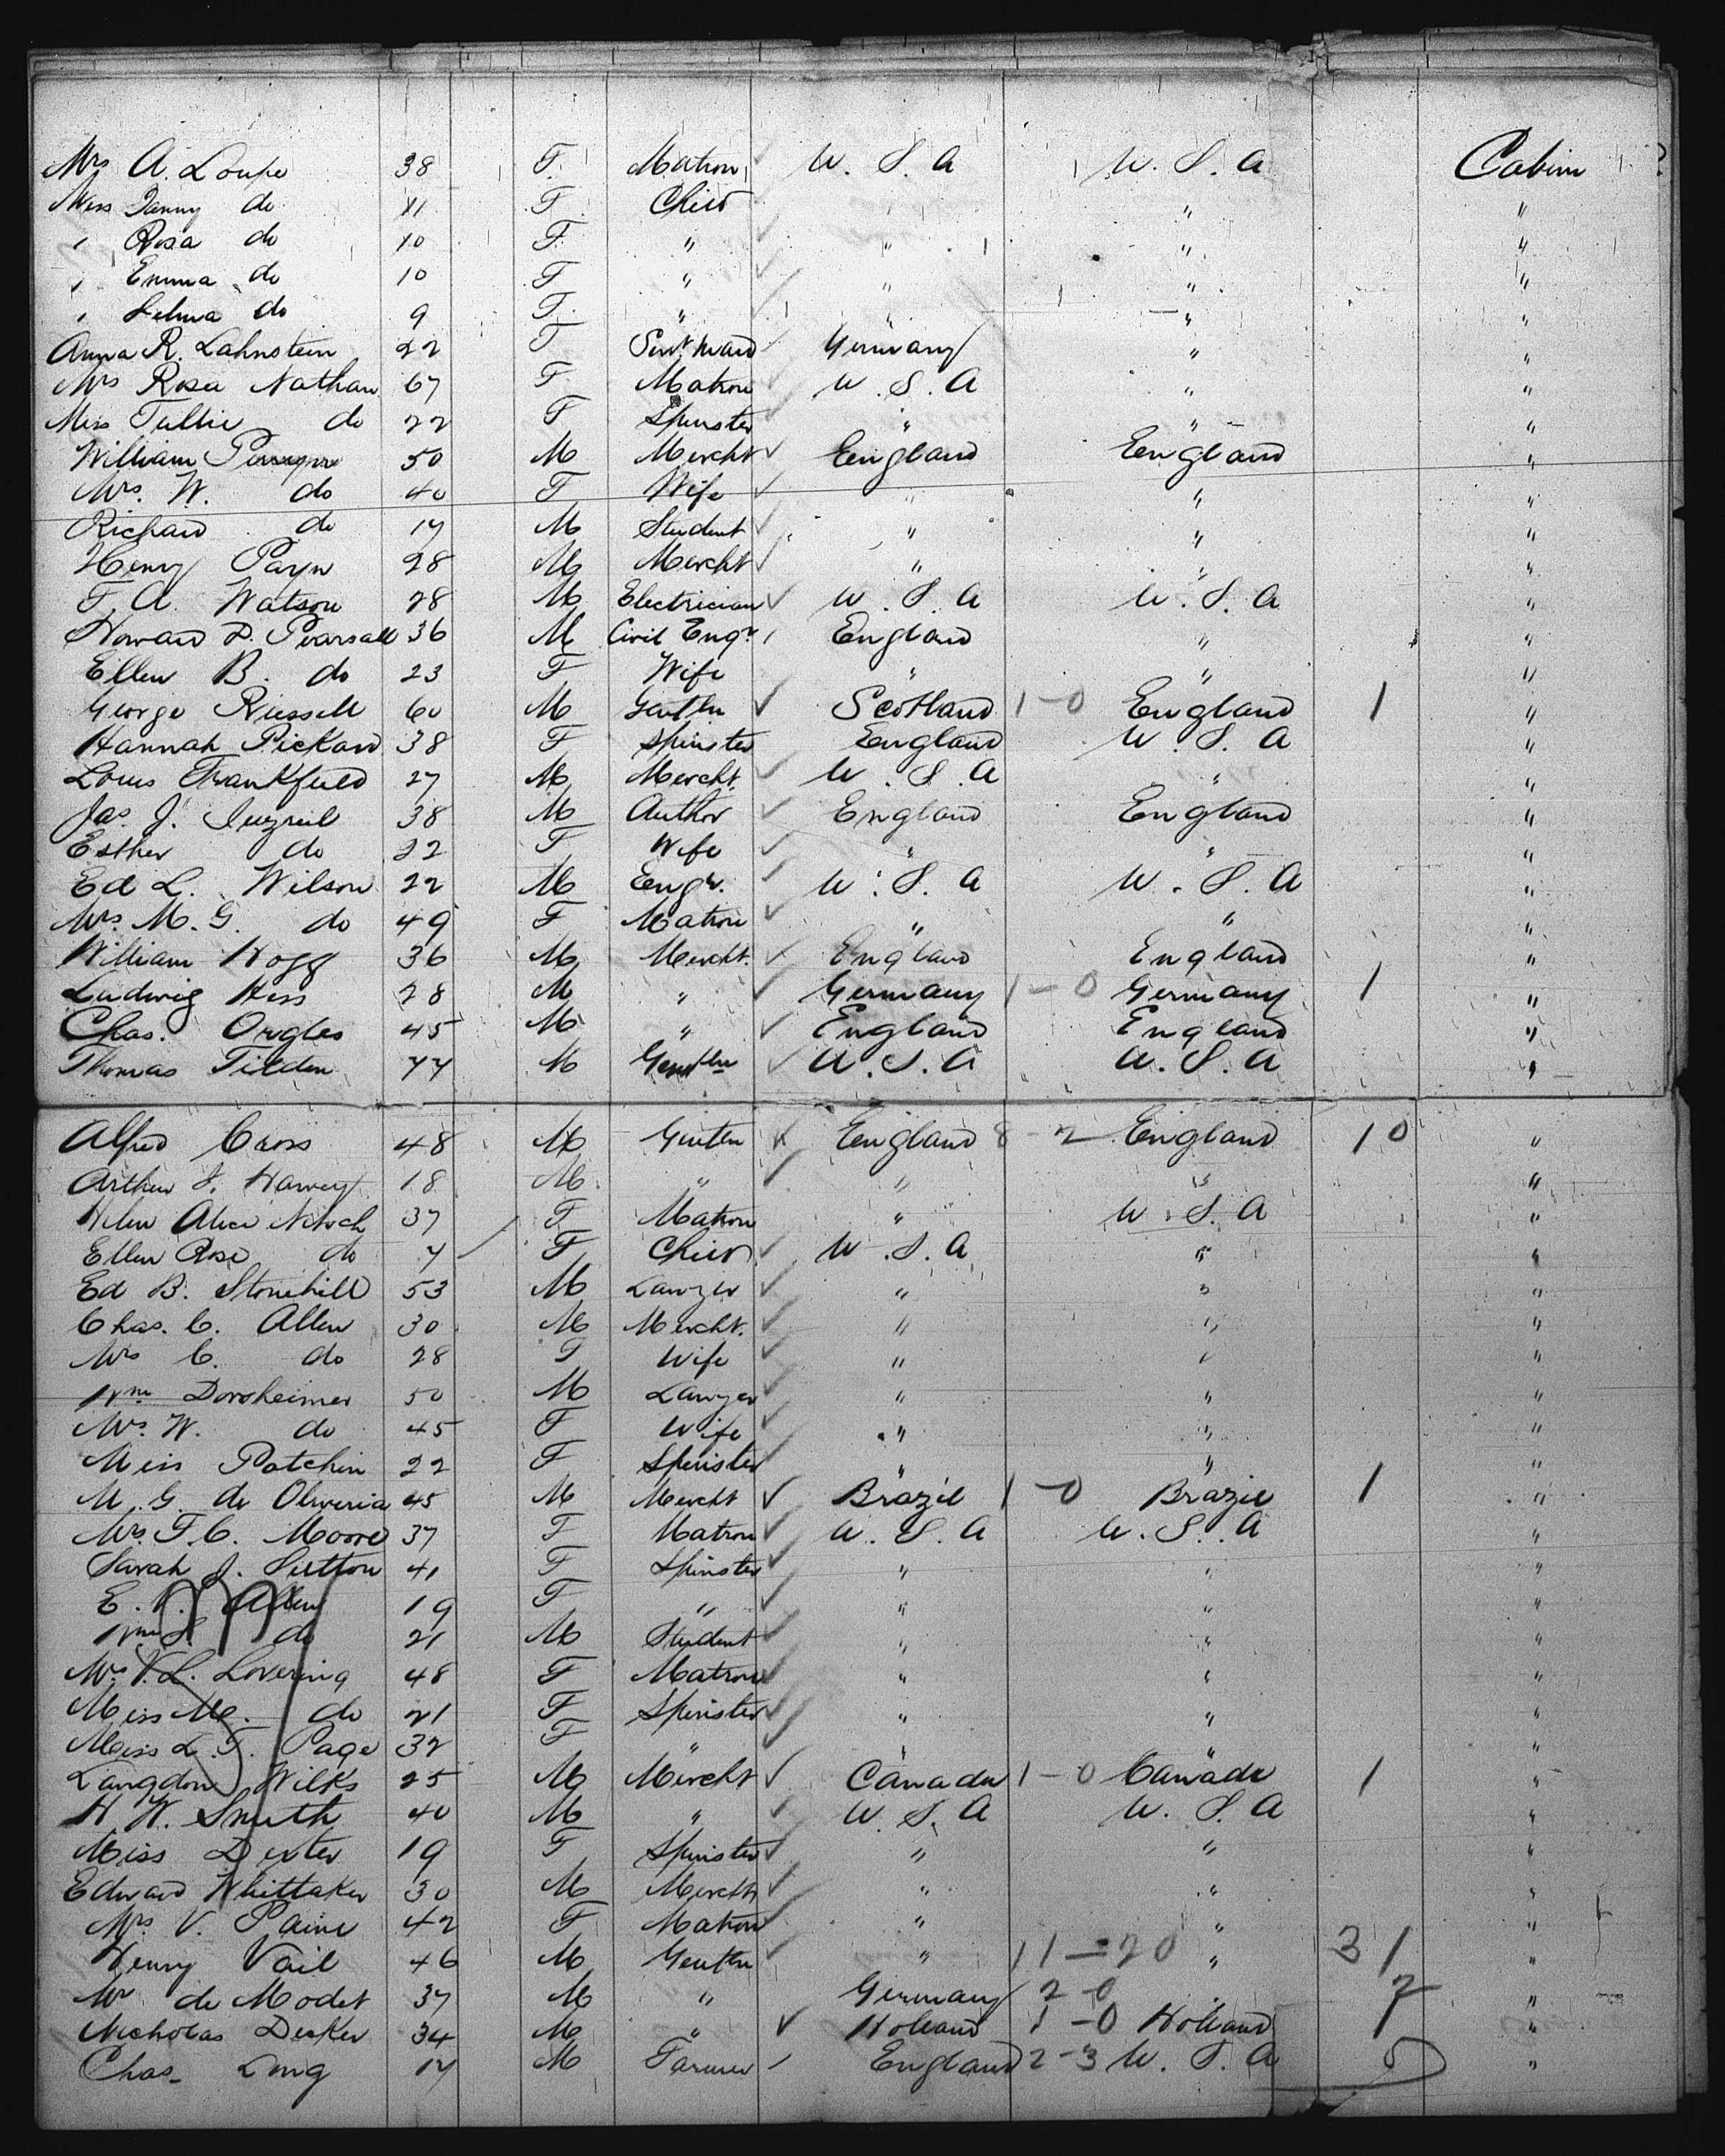 Mrs A. Loupe 38 F. Matron U. S. A U. S. A Cabin
Miss Fanny do 11 F Child " " "
" Rosa do 10 F. " " " "
" Emma do 10 F " " " "
" Selma do 9 F. " " " "
Anna R. Lahnstein 22 F Servt Maid Germany " "
Mrs Rosa Nathan 67 F Matron U. S. A " "
Miss Tullie do 22 F Spinster " " "
William 50 M Mercht England England "
Mrs. W. do 40 F Wife " " "
Richard do 17 M Student " " "
Henry Payn 28 M Mercht " " "
F. A. Watson 28 M Electrician U. S. A U. S. A "
Howard D. Pearsall 36 M Civil Engr England " "
Ellen B. do 23 F Wife " " "
George Russell 60 M Gentln Scotland 1-0 England 1 "
Hannah Pickard 38 F Spinster England U. S. A "
Louis Frankfield 27 M Mercht. U. S. A " "
Jas. J. 38 M Author England England "
Esther do 22 F Wife " " "
Ed L. Wilson 22 M Engr. U. S. A U. S. A "
Mrs. M. G. do 49 F Matron " " "
William Hogg 36 M Mercht. England England "
Ludwig Hess 28 M " Germany 1-0 Germany 1 "
Chas. Orgles 45 M " England England "
Thomas Tilden 77 M Gentln U. S. A U. S. A "
Alfred Cross 48 M Gentln England 8-2 England 10 "
Arthur J. Harvey 18 M. " " " "
Helen Alice 37 F Matron " U. S. A "
Ellen Rose do 7 F Child U. S. A " "
Ed B. Stonehill 53 M Lawyer " " "
Chas. C. Allen 30 M Mercht. " " "
Mrs C. do 28 F Wife " " "
Wm Dorsheimer 50 M Lawyer " " "
Mrs. W. do 45 F Wife " " "
Miss Patchin 22 F Spinster " " "
M. G. de Oliveria 45 M Mercht Brazil 1-0 Brazil 1 "
Mrs F. C. Moore 37 F Matron U. S. A U. S. A "
Sarah J. Sutton 41 F Spinster " " "
E. V. Allen 19 F " " " "
Wm S. do 21 M Student " " "
Mrs V. L. Lovering 48 F Matron " " "
Miss M. do 21 F Spinster " " "
Miss L. F. Page 32 F " " " "
Langdon Wilks 25 M Mercht Canada 1-0 Canada 1 "
H. W. Smith 40 M " U. S. A U. S. A "
Miss Dexter 19 F Spinster " " "
Edward Whittaker 30 M Mercht " " "
Mrs V. Paine 42 F Matron " " "
Henry Vail 46 M Gentln " 11-20 " 31 "
Mr de Modet 37 M " Germany 2-0 2 "
Nicholas Decker 34 M " Holland 1-0 Holland 1 "
Chas. Long 17 M Farmer England 2-3 U. S. A 5 "